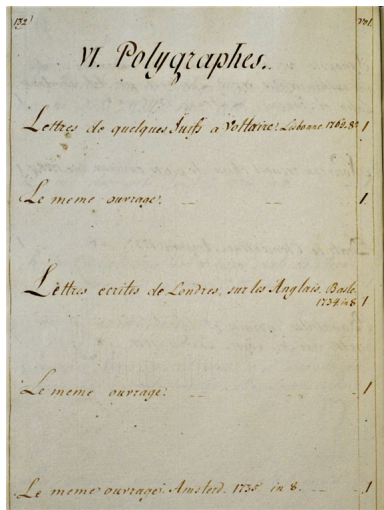 132) vol.
VI. Polygraphes.
Lettres de quelques Juifs a Voltaire. Lisbonne 1769. 8º 1
Le meme ouvrage. 1.
Lettres ecrites de Londres, sur les Anglais. Basle.
1734. in 8. 1
Le meme ouvrage. 1
Le meme ouvrage. Amsterd. 1735. in 8. 1